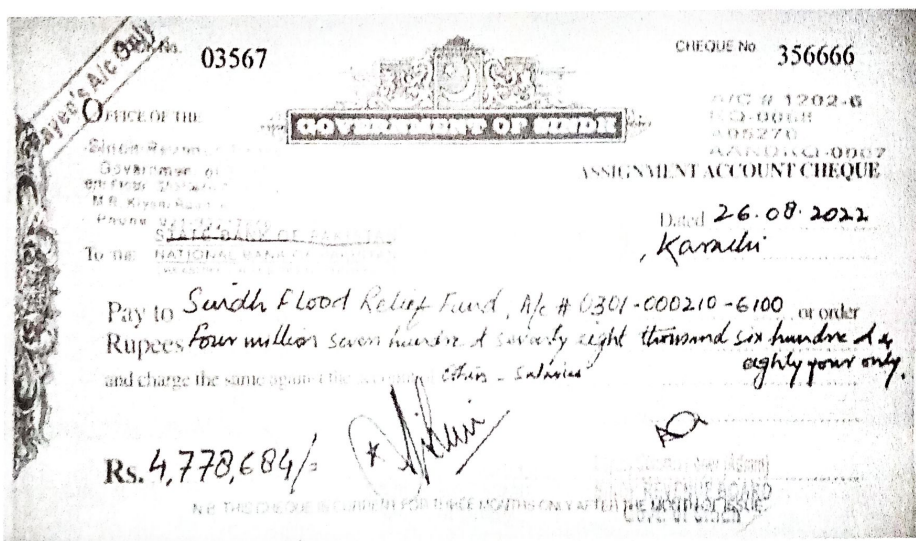 Payee's A/c Only
No. 03567
CHEQUE No 356666
OFFICE OF THE
GOVERNMENT OF SINDH
A/C # 1202-6
A05270
ASSIGNMENT ACCOUNT CHEQUE
Dated 26.08.2022
, Karachi
STATE BANK OF PAKISTAN
To THE NATIONAL BANK OF
Pay to Sindh Flood Relief Fund, A/c # 0301-000210-6100 or order
Rupees Four million seven hundred seventy eight thousand six hundred &
eighty four only.
and charge the same against the account of Others - Salaries
Rs. 4,778,684/=
N.B. THIS CHEQUE IS CURRENT FOR THREE MONTHS ONLY AFTER THE MONTH OF ISSUE.